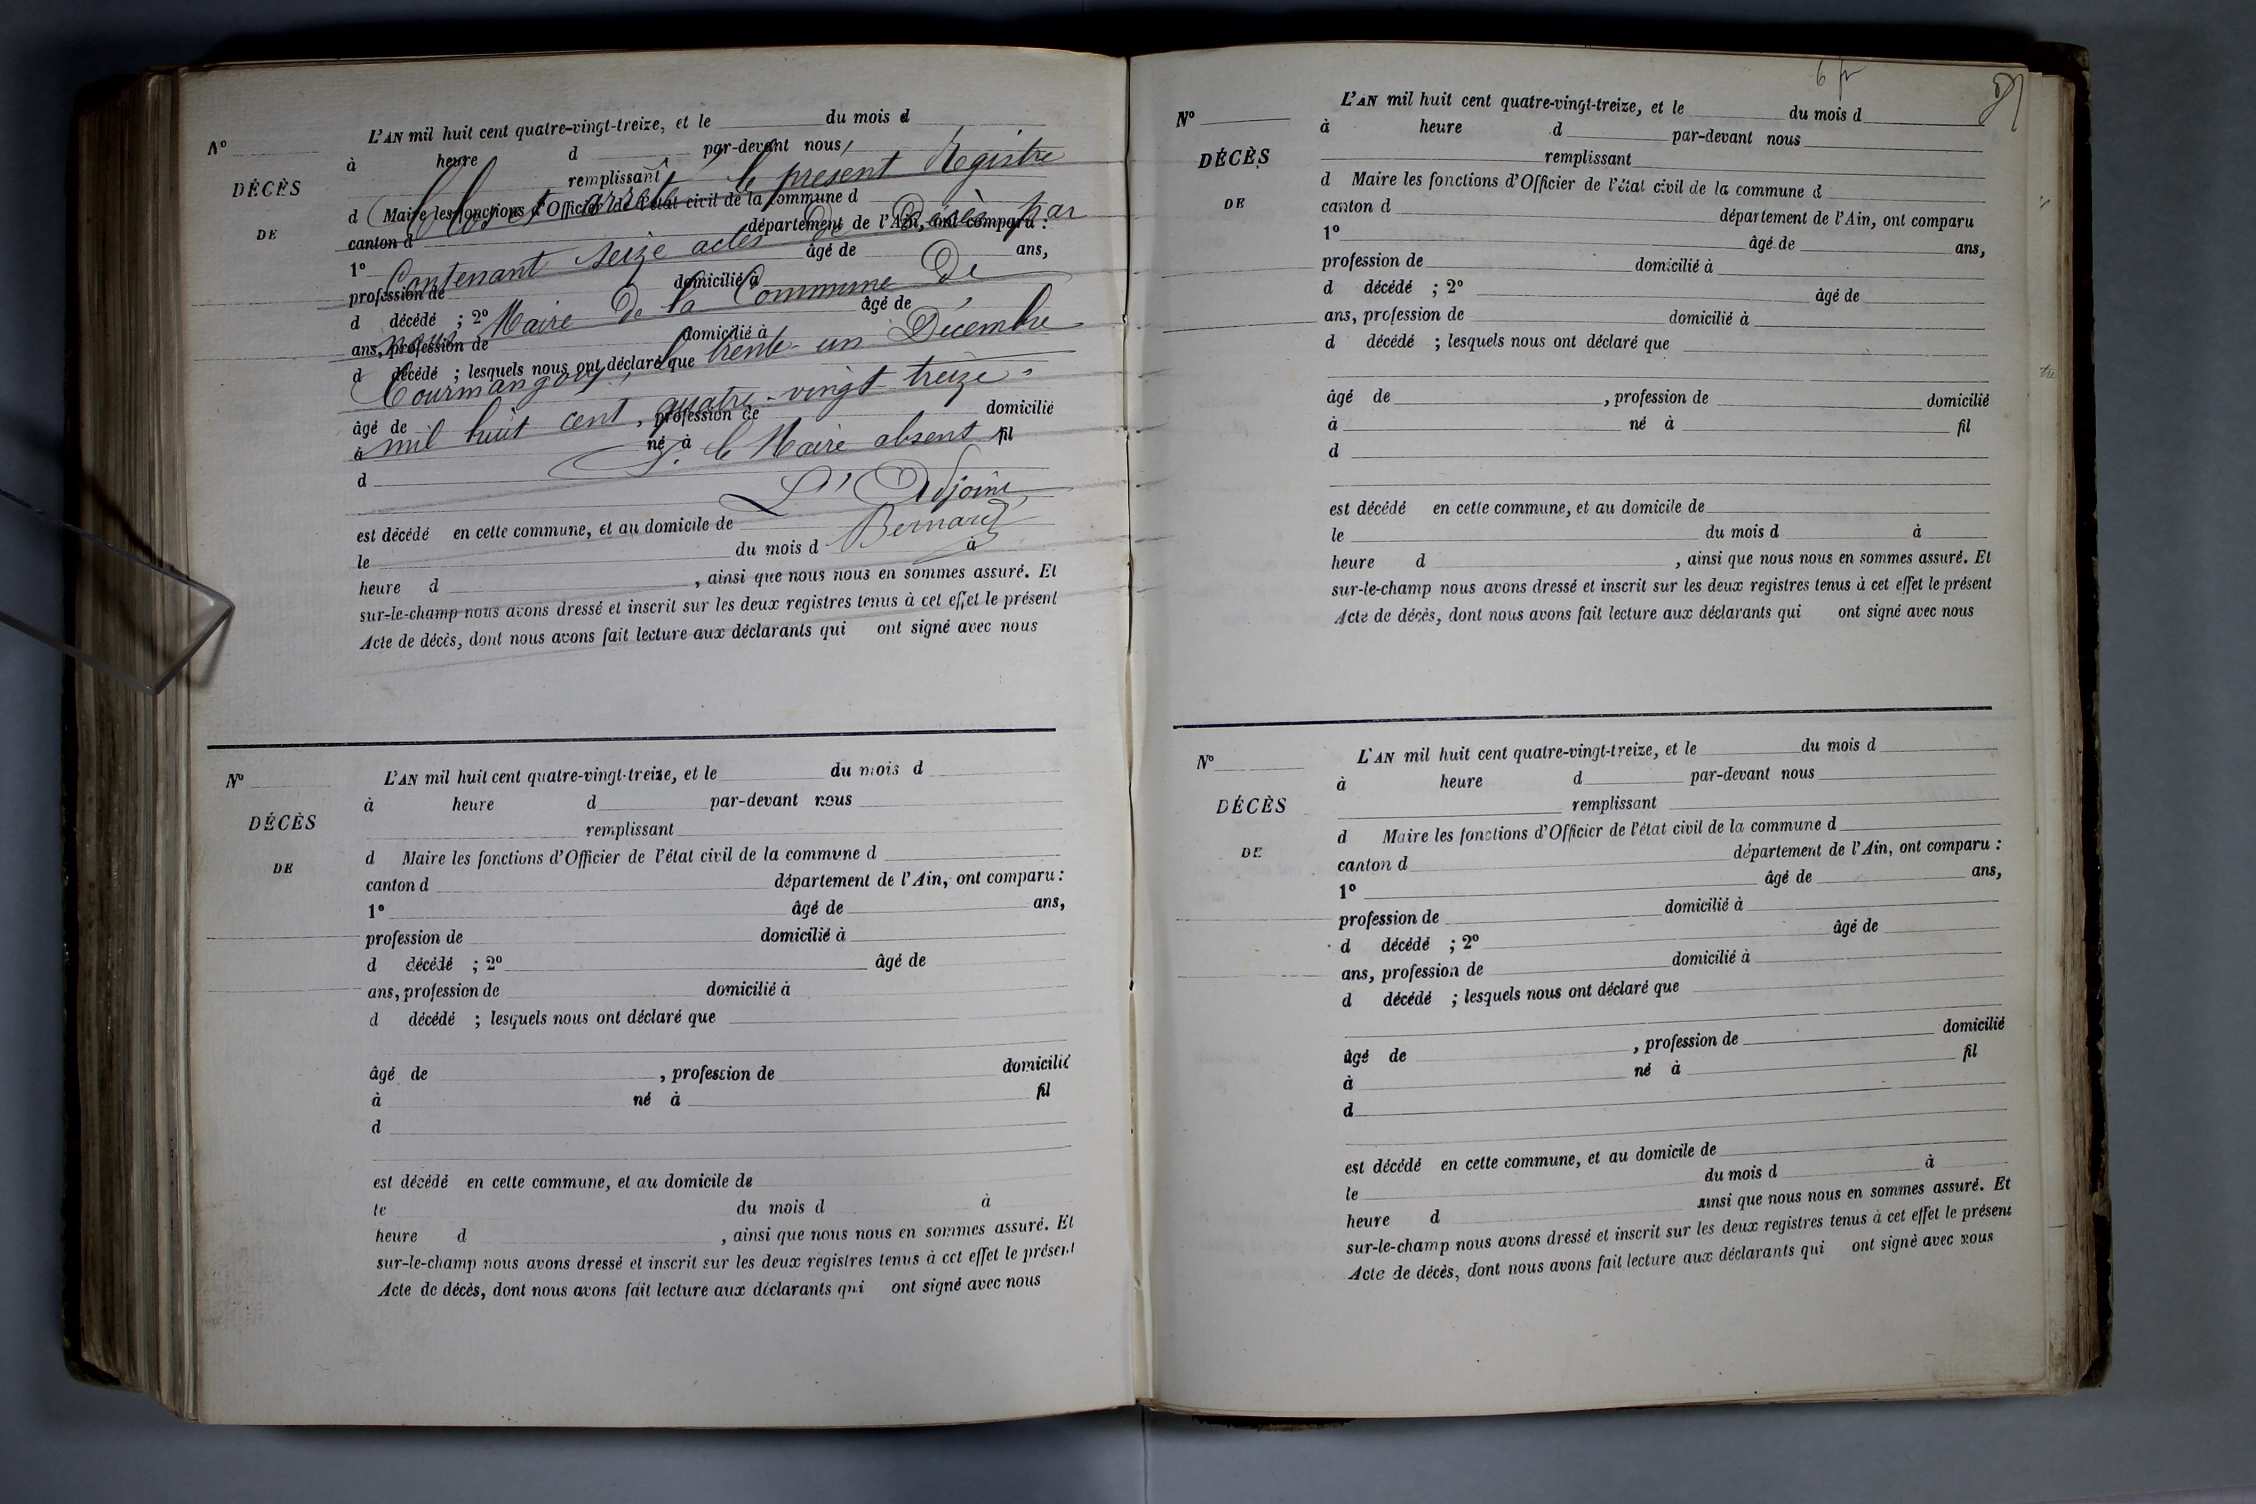 N°
DÉCÈS
DE
L'AN mil huit cent quatre-vingt-treize, et le du mois d
à heure d par-devant nous
remplissant
Clos et arrêté, le présent Registre
d Maire les fonctions d'Officier de l'état civil de la commune d
canton d département de l'Ain, ont comparu :
Contenant seize actes de Décès par
1° âgé de ans,
profession de domicilié à
nous Maire de la Commune de
d décédé ; 2° âgé de
ans, profession de domicilié à
Courmangoux, le trente-un Décembre
d décédé ; lesquels nous ont déclaré que
mil huit cent quatre-vingt treize.
âgé de , profession de domicilié
à né à fil
P. le Maire absent
d
L'Adjoint,
Bernard
est décédé en cette commune, et au domicile de
le du mois d à
heure d , ainsi que nous nous en sommes assuré. Et
sur-le-champ nous avons dressé et inscrit sur les deux registres tenus à cet effet le présent
Acte de décès, dont nous avons fait lecture aux déclarants qui ont signé avec nous
N°
DÉCÈS
DE
L'AN mil huit cent quatre-vingt-treize, et le du mois d
à heure d par-devant nous
remplissant
d Maire les fonctions d'Officier de l'état civil de la commune d
canton d département de l'Ain, ont comparu :
1° âgé de ans,
profession de domicilié à
d décédé ; 2° âgé de
ans, profession de domicilié à
d décédé ; lesquels nous ont déclaré que
âgé de , profession de domicilié
à né à fil
d
est décédé en cette commune, et au domicile de
le du mois d à
heure d , ainsi que nous nous en sommes assuré. Et
sur-le-champ nous avons dressé et inscrit sur les deux registres tenus à cet effet le présent
Acte de décès, dont nous avons fait lecture aux déclarants qui ont signé avec nous
6 fr
N°
DÉCÈS
DE
L'AN mil huit cent quatre-vingt-treize, et le du mois d
à heure d par-devant nous
remplissant
d Maire les fonctions d'Officier de l'état civil de la commune d
canton d département de l'Ain, ont comparu
1° âgé de ans,
profession de domicilié à
d décédé ; 2° âgé de
ans, profession de domicilié à
d décédé ; lesquels nous ont déclaré que
âgé de , profession de domicilié
à né à fil
d
est décédé en cette commune, et au domicile de
le du mois d à
heure d , ainsi que nous nous en sommes assuré. Et
sur-le-champ nous avons dressé et inscrit sur les deux registres tenus à cet effet le présent
Acte de décès, dont nous avons fait lecture aux déclarants qui ont signé avec nous
N°
DÉCÈS
DE
L'AN mil huit cent quatre-vingt-treize, et le du mois d
à heure d par-devant nous
remplissant
d Maire les fonctions d'Officier de l'état civil de la commune d
canton d département de l'Ain, ont comparu :
1° âgé de ans,
profession de domicilié à
d décédé ; 2° âgé de
ans, profession de domicilié à
d décédé ; lesquels nous ont déclaré que
âgé de , profession de domicilié
à né à fil
d
est décédé en cette commune, et au domicile de
le du mois d à
heure d ainsi que nous nous en sommes assuré. Et
sur-le-champ nous avons dressé et inscrit sur les deux registres tenus à cet effet le présent
Acte de décès, dont nous avons fait lecture aux déclarants qui ont signé avec nous